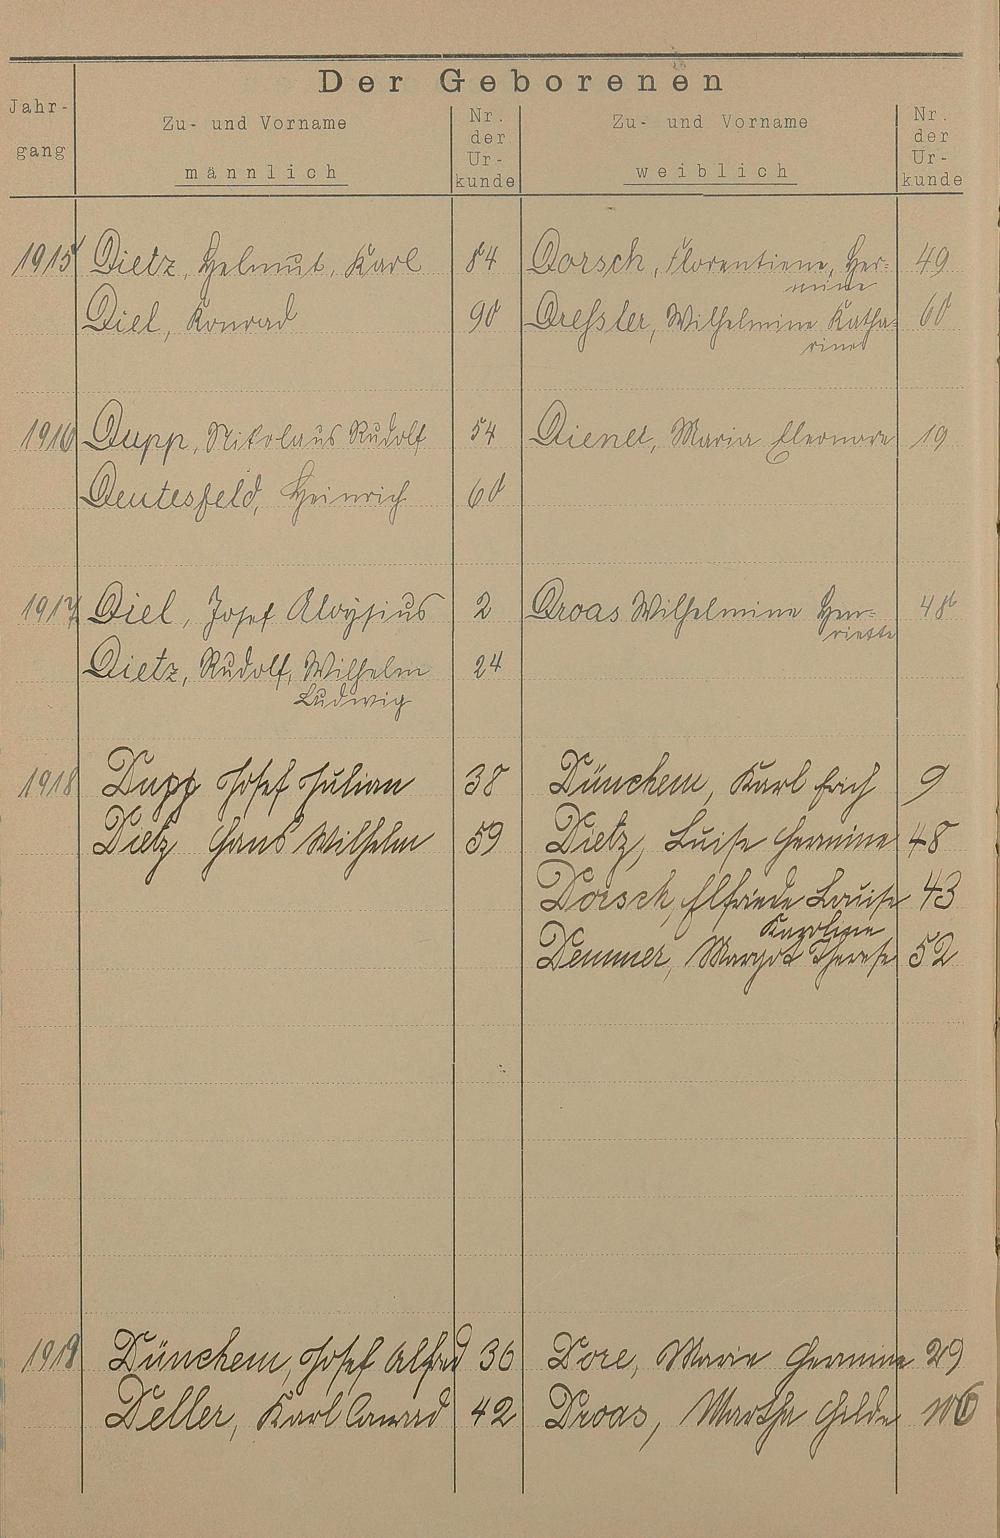 Der Geborenen
Jahr-
gang
Zu- und Vorname
männlich
Nr.
der
Ur-
kunde
Zu- und Vorname
weiblich
Nr.
der
Ur-
kunde
1915 Dietz, Helmut, Karl 84 Dorsch, Florentiene, Her-
mine
Diel, Konrad 90 Dressler, Wilhelmine Katha- 60
rina
49
1916 Dupp, Nikolaus Rudolf 54 Diener, Maria Eleonore 19
Deutesfeld, Heinrich 60
1917 Diel, Josef Aloysius 2 Droas Wilhelmine Hen-
riette
Dietz, Rudolf, Wilhelm 24
Ludwig
1918 Dupp Josef Julian 38 Dünchem, Karl Erich 9
Dietz Hans Wilhelm 59 Dietz, Luise Hermine 48
Dorsch, Elfriede Louise 43
Karoline
Demmer, Margot Therese 52
1919 Dünchem, Josef Alfred 36 Dore, Marie Hermine 29
Deller, Karl Conrad 42 Droas, Martha Hilde